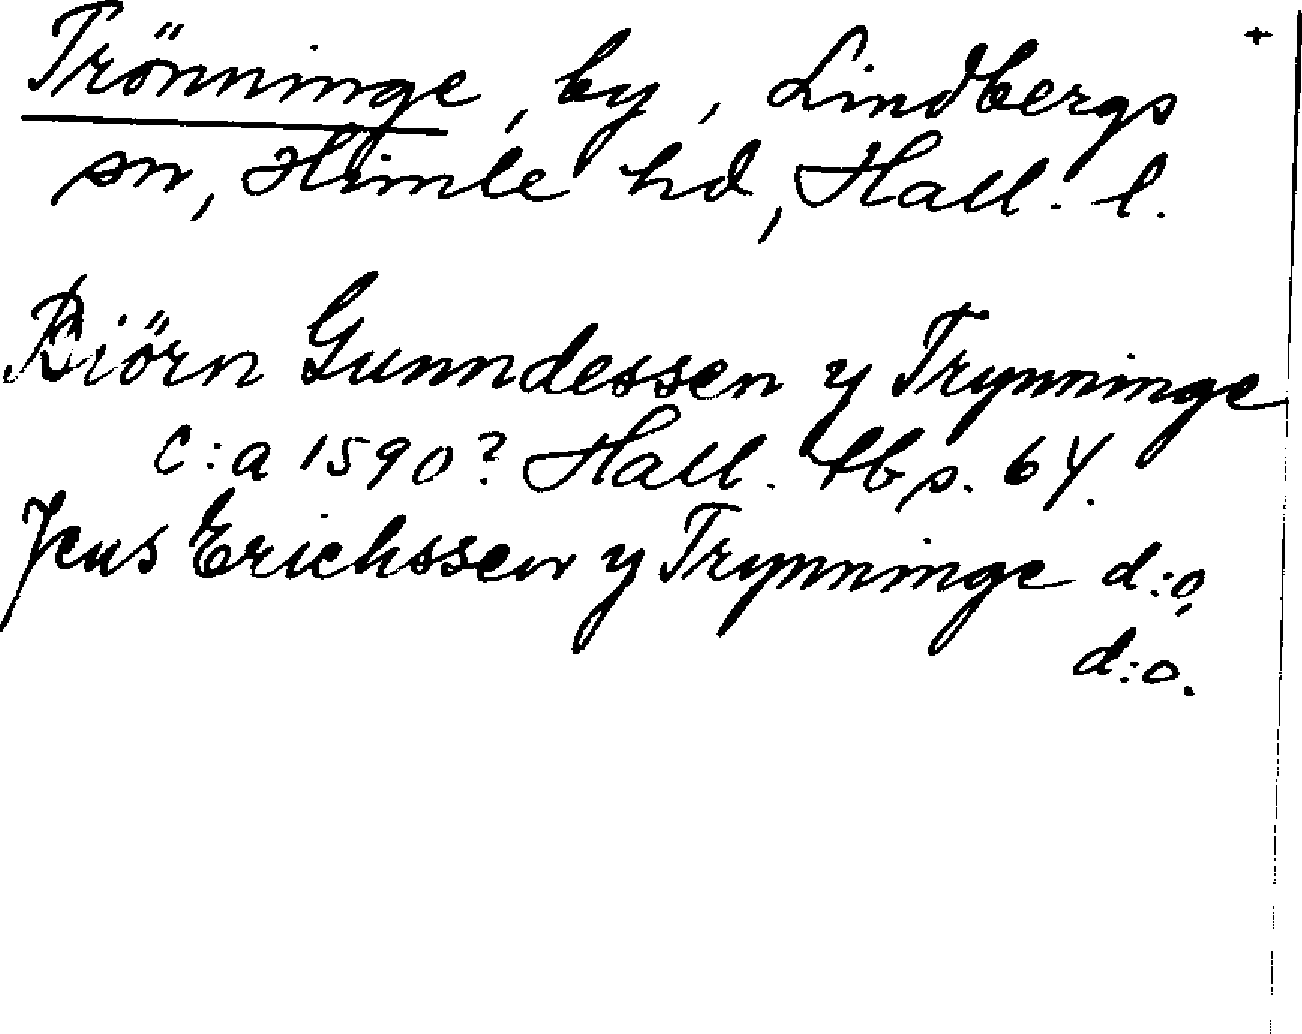 Trönninge, by, Lindbergs +
sn, Himle hd, Hall. l.
Biörn Gunndessen y Trynninge
c:a 1590? Hall. tb s. 64.
Jens Erichssen y Trynninge d:o,
d:o.